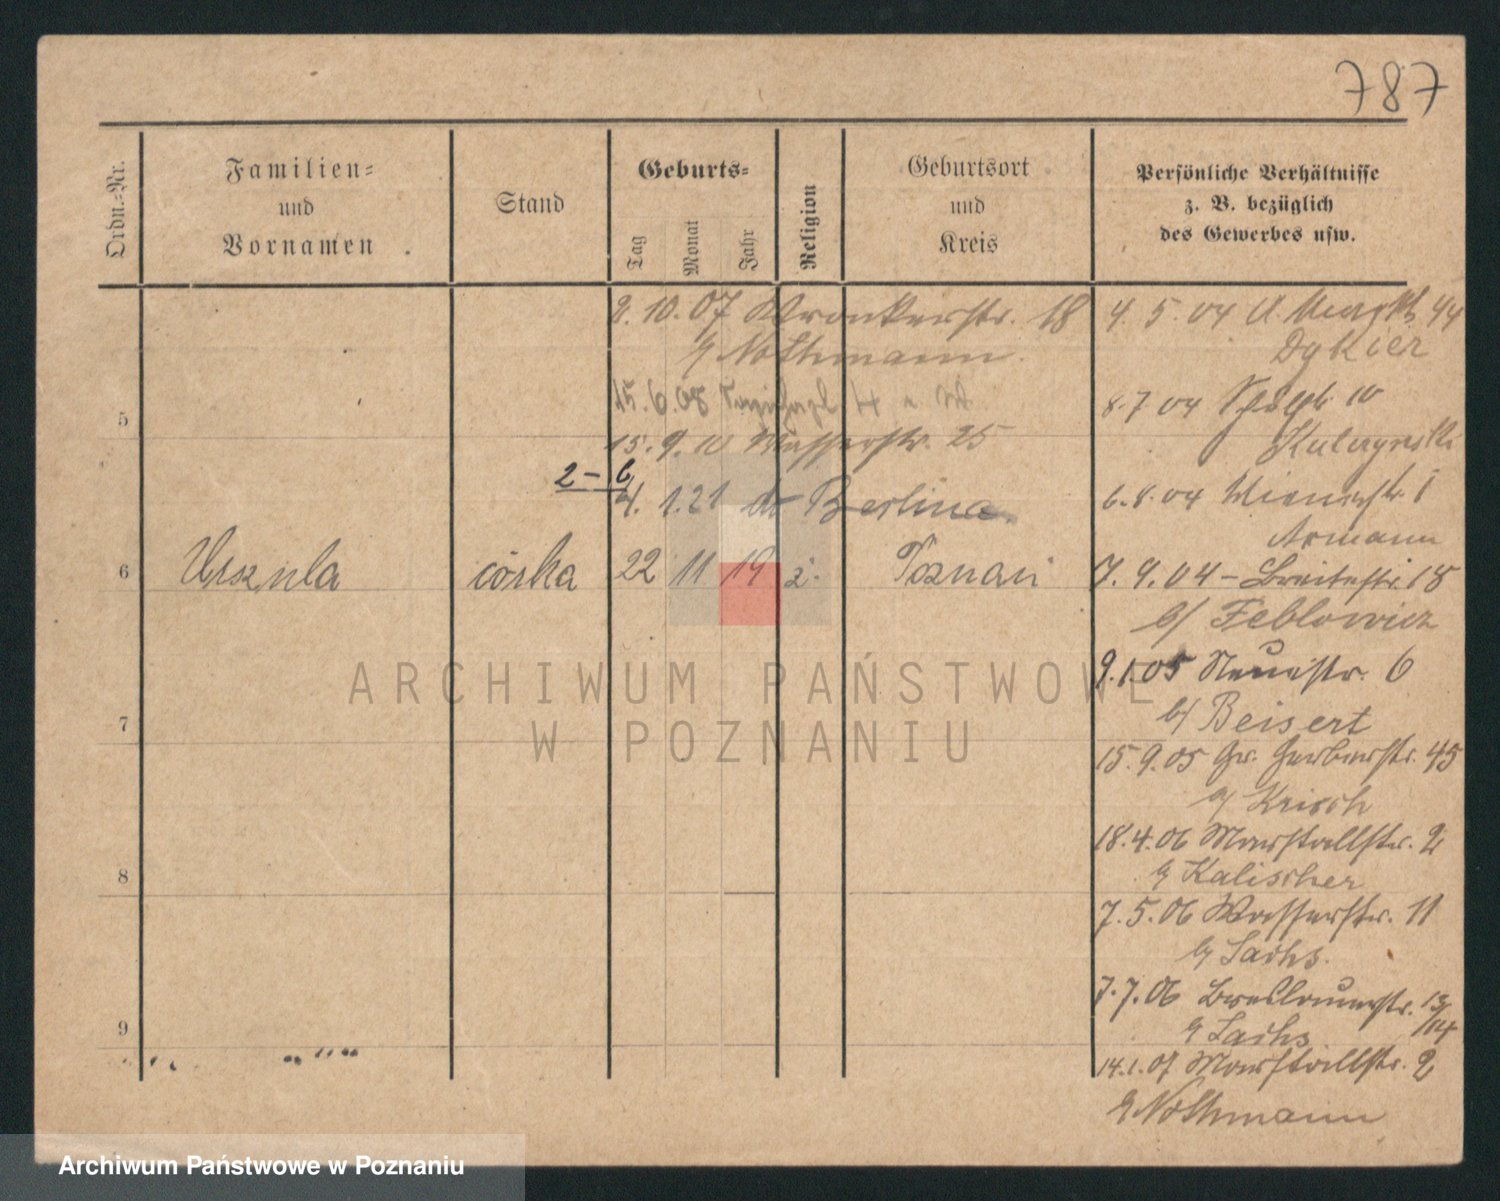 787
Ordn.-Nr.
Familien-
und
Vornamen
Stand
Geburts-
Tag
Monat
Jahr
Religion
Geburtsort
und
Kreis
Persönliche Verhältnisse
z. B. bezüglich
des Gewerbes usw.
2.10.07 Wronkerstr. 18
b/ Nothmann.
15.6.08
15.9.10 Wasserstr. 25
2-6
4. 1.21 do Berlina.
5
6 Urszula córka 22 11 19 ż. Poznań
7
8
9
4.5.04 A. Markt 44
Dykier
8.7 04 10
6.8.04 Wienerstr. 1
Asmann
7.9.04 - Breitestr. 18
b/ Feblowicz
9.1.05 Neuestr. 6
b/ Beisert
15.9.05 Gr. Gerberstr. 45
b/ Krisch
18.4.06 Marstallstr. 2
b/ Kalischer
7.5.06 Wasserstr. 11
b/ Sachs.
7.7.06 Breslauerstr. 13/14
b/ Sachs
14.1.07 Marstallstr. 2
b/ Nothmann
ARCHIWUM PAŃSTWOWE
W POZNANIU
Archiwum Państwowe w Poznaniu